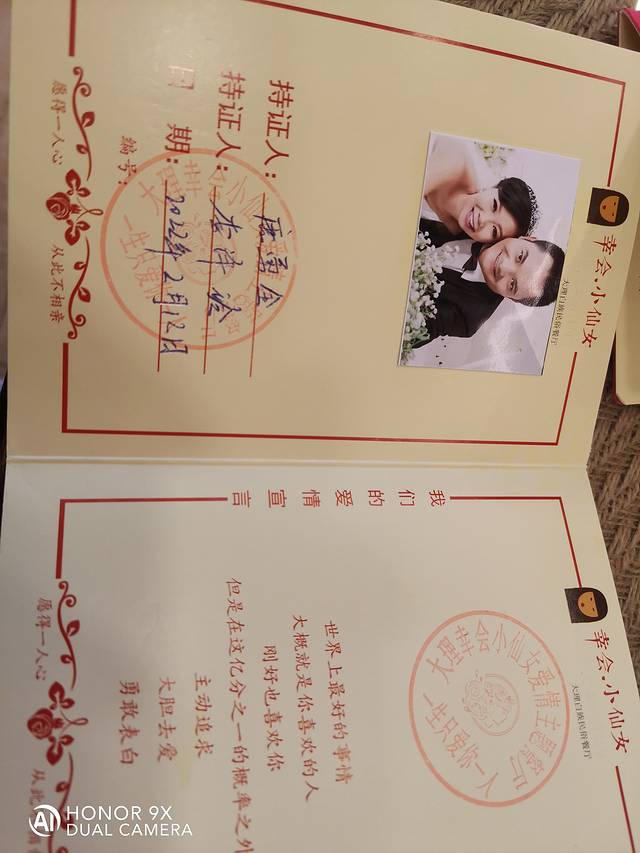 幸会·小仙女
大理白族民俗餐厅
持证人：
持证人：
日 期：2022年2月12日
编号：
一生只爱你一人
愿得一人心
从此不相亲
我们的爱情宣言
幸会·小仙女
大理白族民俗餐厅
世界上最好的事情
大概就是你喜欢的人
刚好也喜欢你
但是在这亿分之一的概率之外
主动追求
大胆去爱
勇敢表白
大理幸会小仙女爱情主题餐厅
一生只爱你一人
愿得一人心
HONOR 9X
DUAL CAMERA